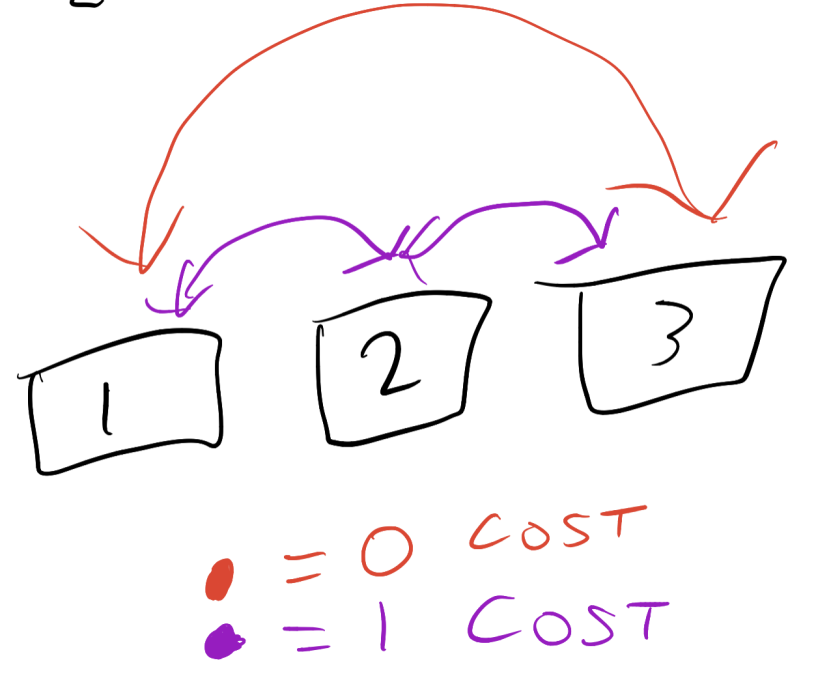 1 2 3
= 0 COST
= 1 COST